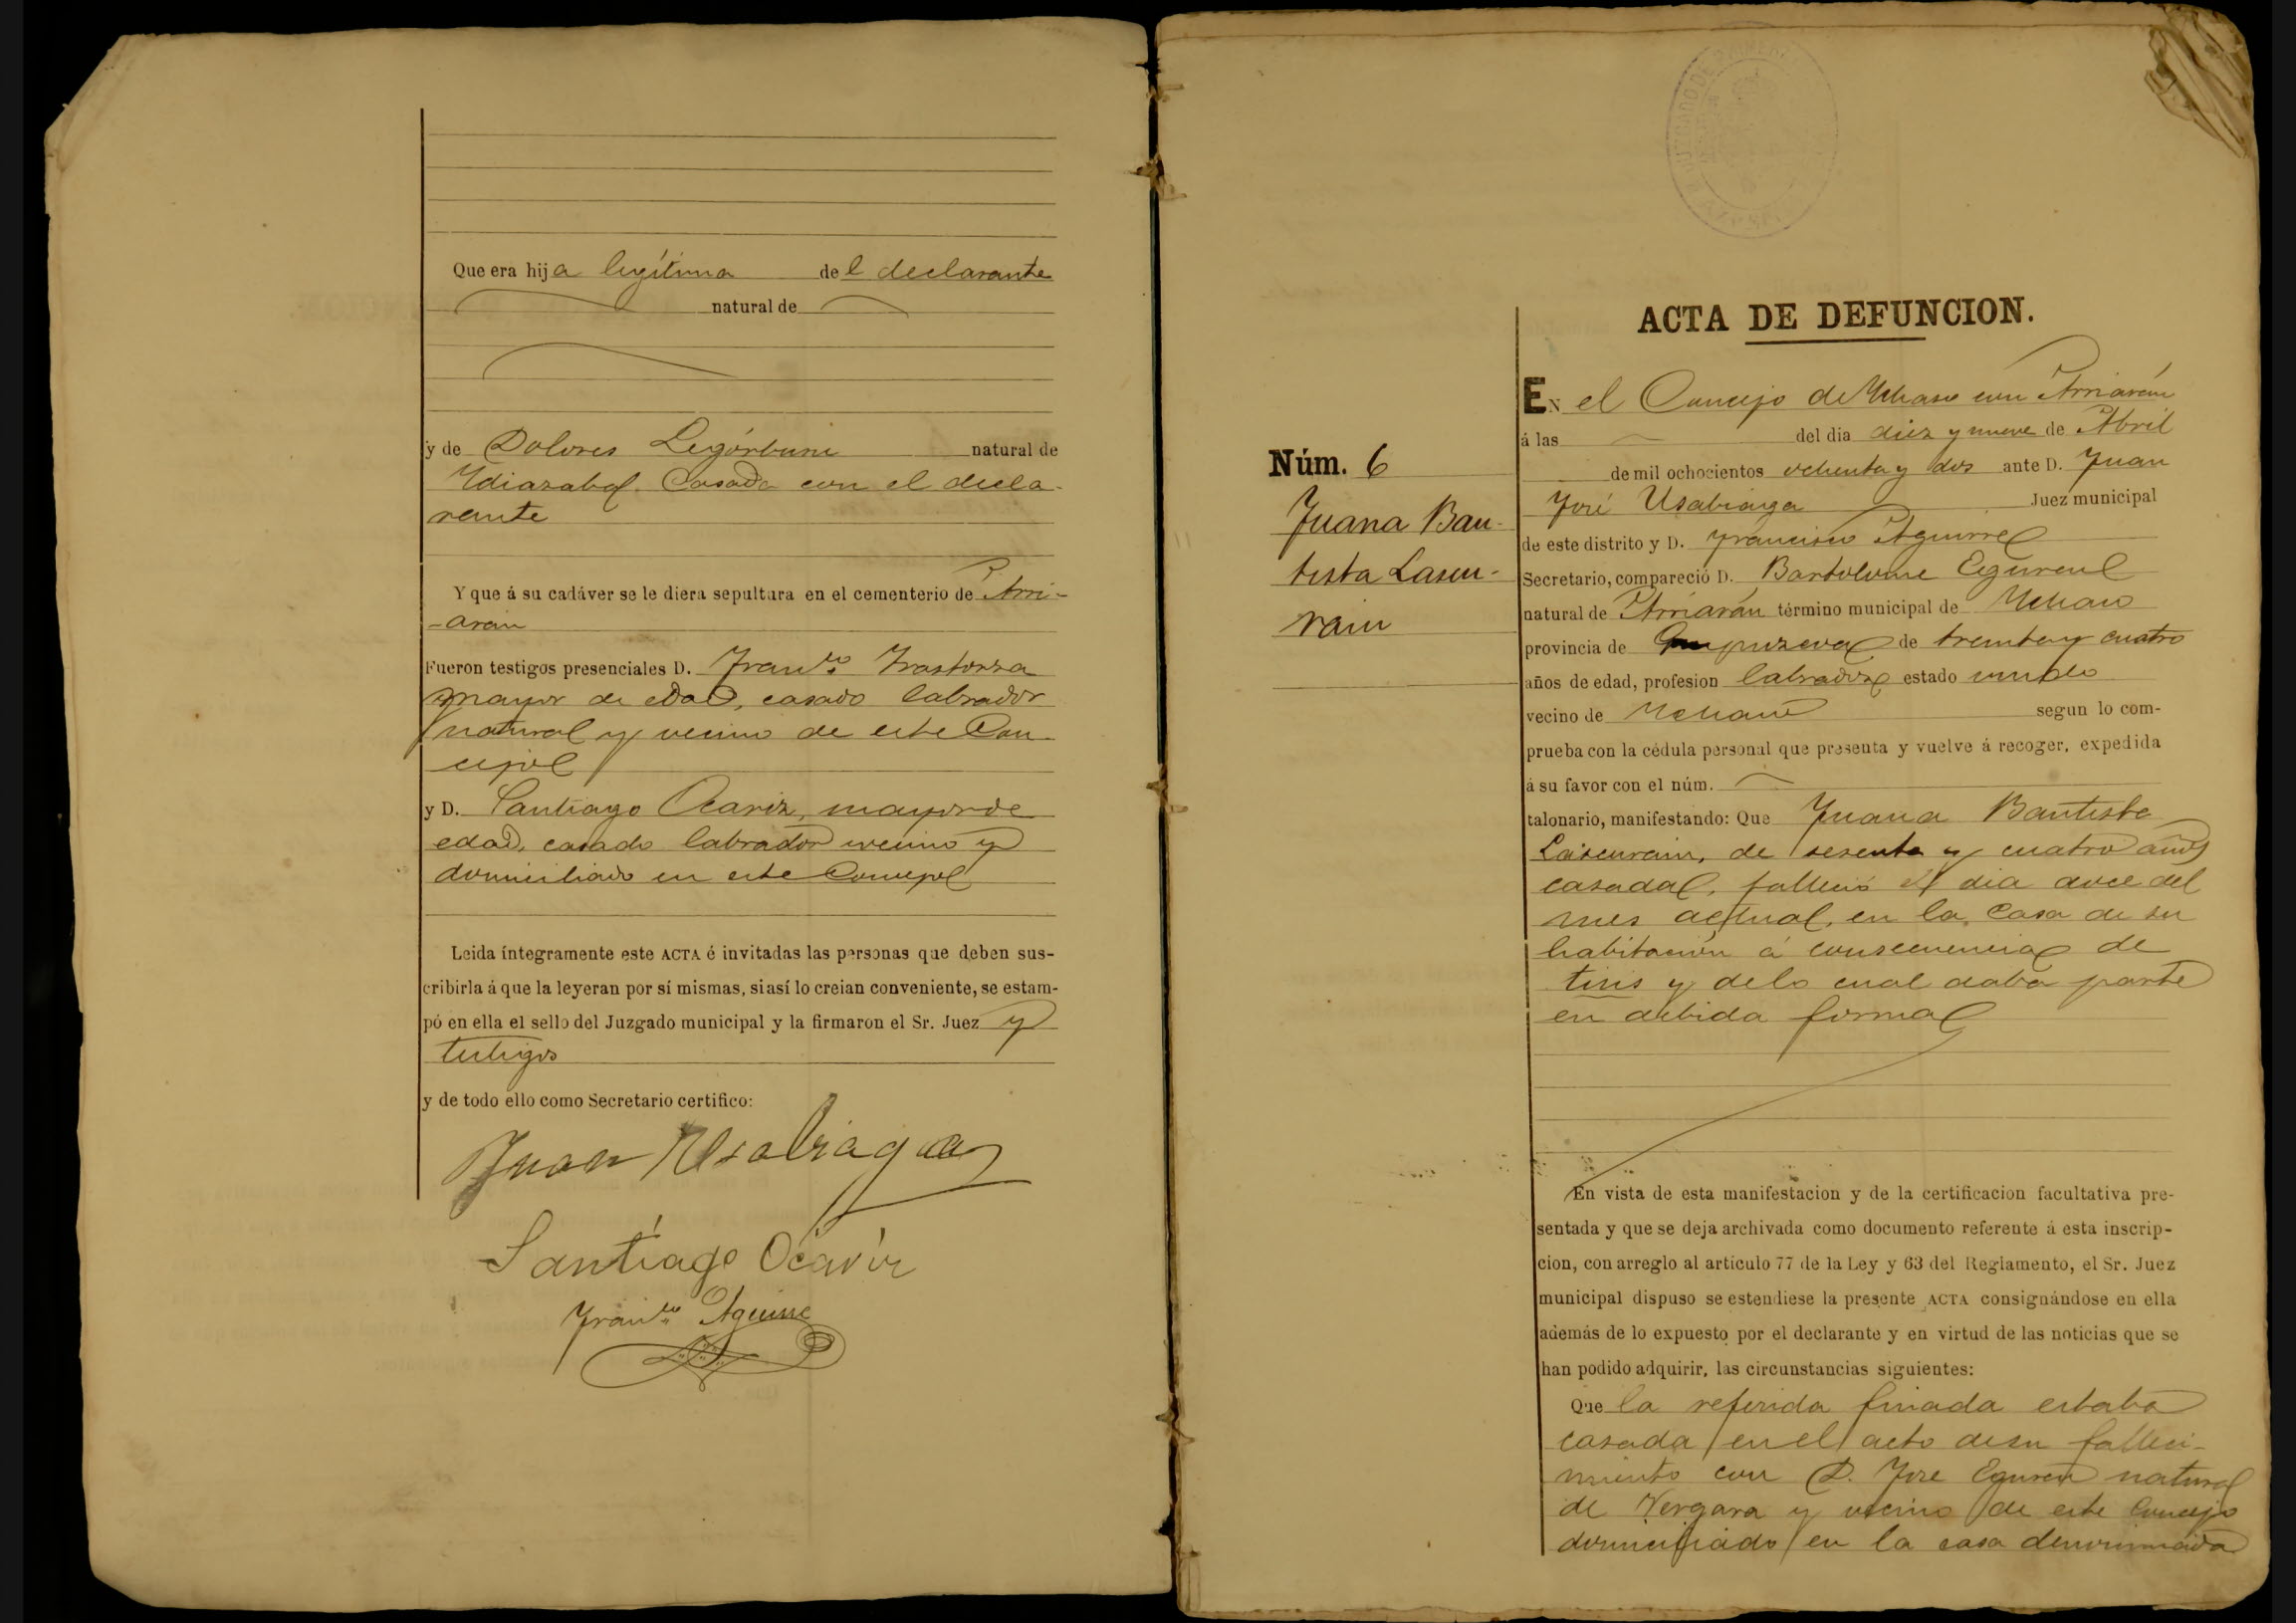 Que era hija legítima del declarante
natural de
y de Dolores Legórburu natural de
Ydiazabal. Casada con el decla-
rante
Y que á su cadáver se le diera sepultura en el cementerio de Arri-
-aran
Fueron testigos presenciales D. Fran.co Irastorza
mayor de edad, casado labrador
natural y vecino de este Con-
cejo
y D. Santiago Ocariz, mayor de
edad, casado labrador vecino y
domiciliado en este Concejo
Leida íntegramente este ACTA é invitadas las personas que deben sus-
cribirla á que la leyeran por sí mismas, si así lo creian conveniente, se estam-
pó en ella el sello del Juzgado municipal y la firmaron el Sr. Juez y
testigos
y de todo ello como Secretario certifico:
Juan Usabiaga
Santiago Ocariz
Fran.co Aguirre
ACTA DE DEFUNCION.
Núm. 6
Juana Bau-
tista Lascu-
rain
EN el Concejo de Ychaso con Arriarán
á las del dia diez y nueve de Abril
de mil ochocientos ochenta y dos ante D. Juan
José Usabiaga Juez municipal
de este distrito y D. Francisco Aguirre
Secretario, compareció D. Bartolome Eguren
natural de Arriarán término municipal de Ychaso
provincia de Guipuzcoa de treinta y cuatro
años de edad, profesion labrador estado viudo
vecino de Ychaso segun lo com-
prueba con la cédula personal que presenta y vuelve á recoger, expedida
á su favor con el núm.
talonario, manifestando: Que Juana Bautista
Lascurain, de sesenta y cuatro años
casada, falleció el dia doce del
mes actual, en la Casa de su
habitación á consecuencia de
tisis y de lo cual daba parte
en debida forma
En vista de esta manifestacion y de la certificacion facultativa pre-
sentada y que se deja archivada como documento referente á esta inscrip-
cion, con arreglo al artículo 77 de la Ley y 63 del Reglamento, el Sr. Juez
municipal dispuso se estendiese la presente ACTA consignándose en ella
además de lo expuesto por el declarante y en virtud de las noticias que se
han podido adquirir, las circunstancias siguientes:
Que la referida finada estaba
casada en el acto de su falleci-
miento con D. Jose Eguren natural
de Vergara y vecino de este Concejo
domiciliado en la casa denominada